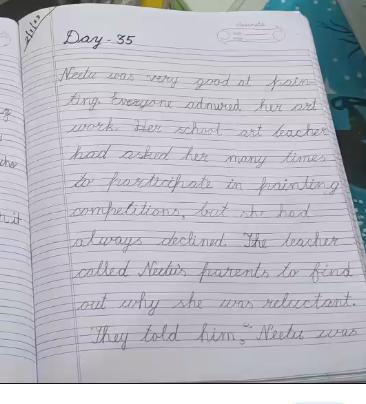 Day - 35
Neetu was very good at pain-
ting. Everyone admired her art
work. Her school art teacher
had asked her many times
to participate in painting
competitions, but she had
always declined. The teacher
called Neetu's parents to find
out why she was reluctant.
They told him, "Neetu was